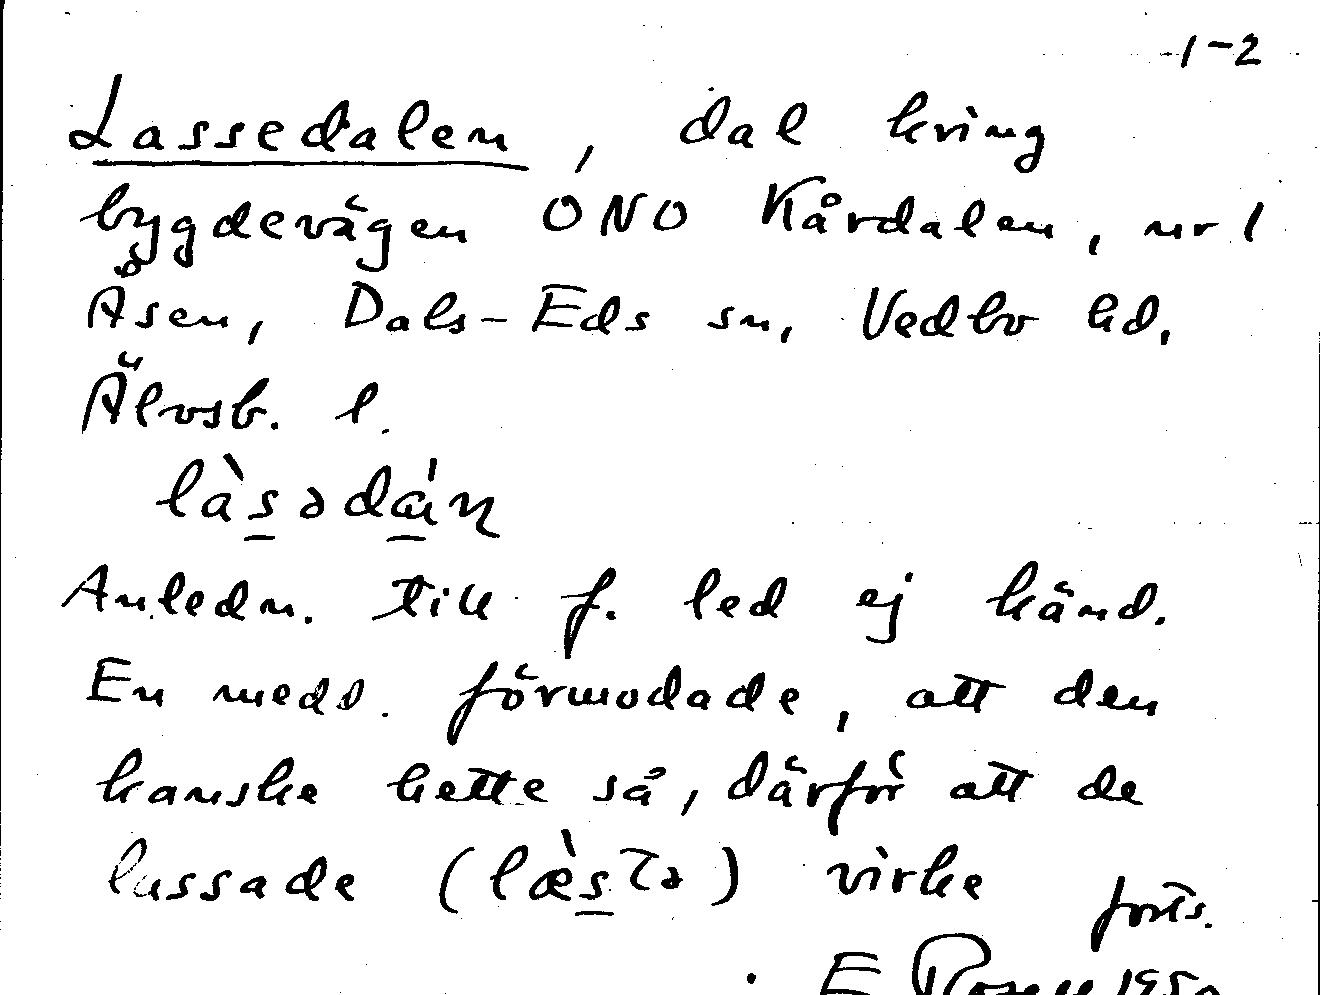 1-2
Lassedalen, dal kring
bygdevägen ONO Kårdalen, nr 1
Åsen, Dals-Eds sn, Vedbo hd,
Älvsb. l.
Anledn. till f. led ej känd.
En medd. förmodade, att den
kanske hette så, därför att de
lassade (læ̀s̱tə) virke
forts.
E